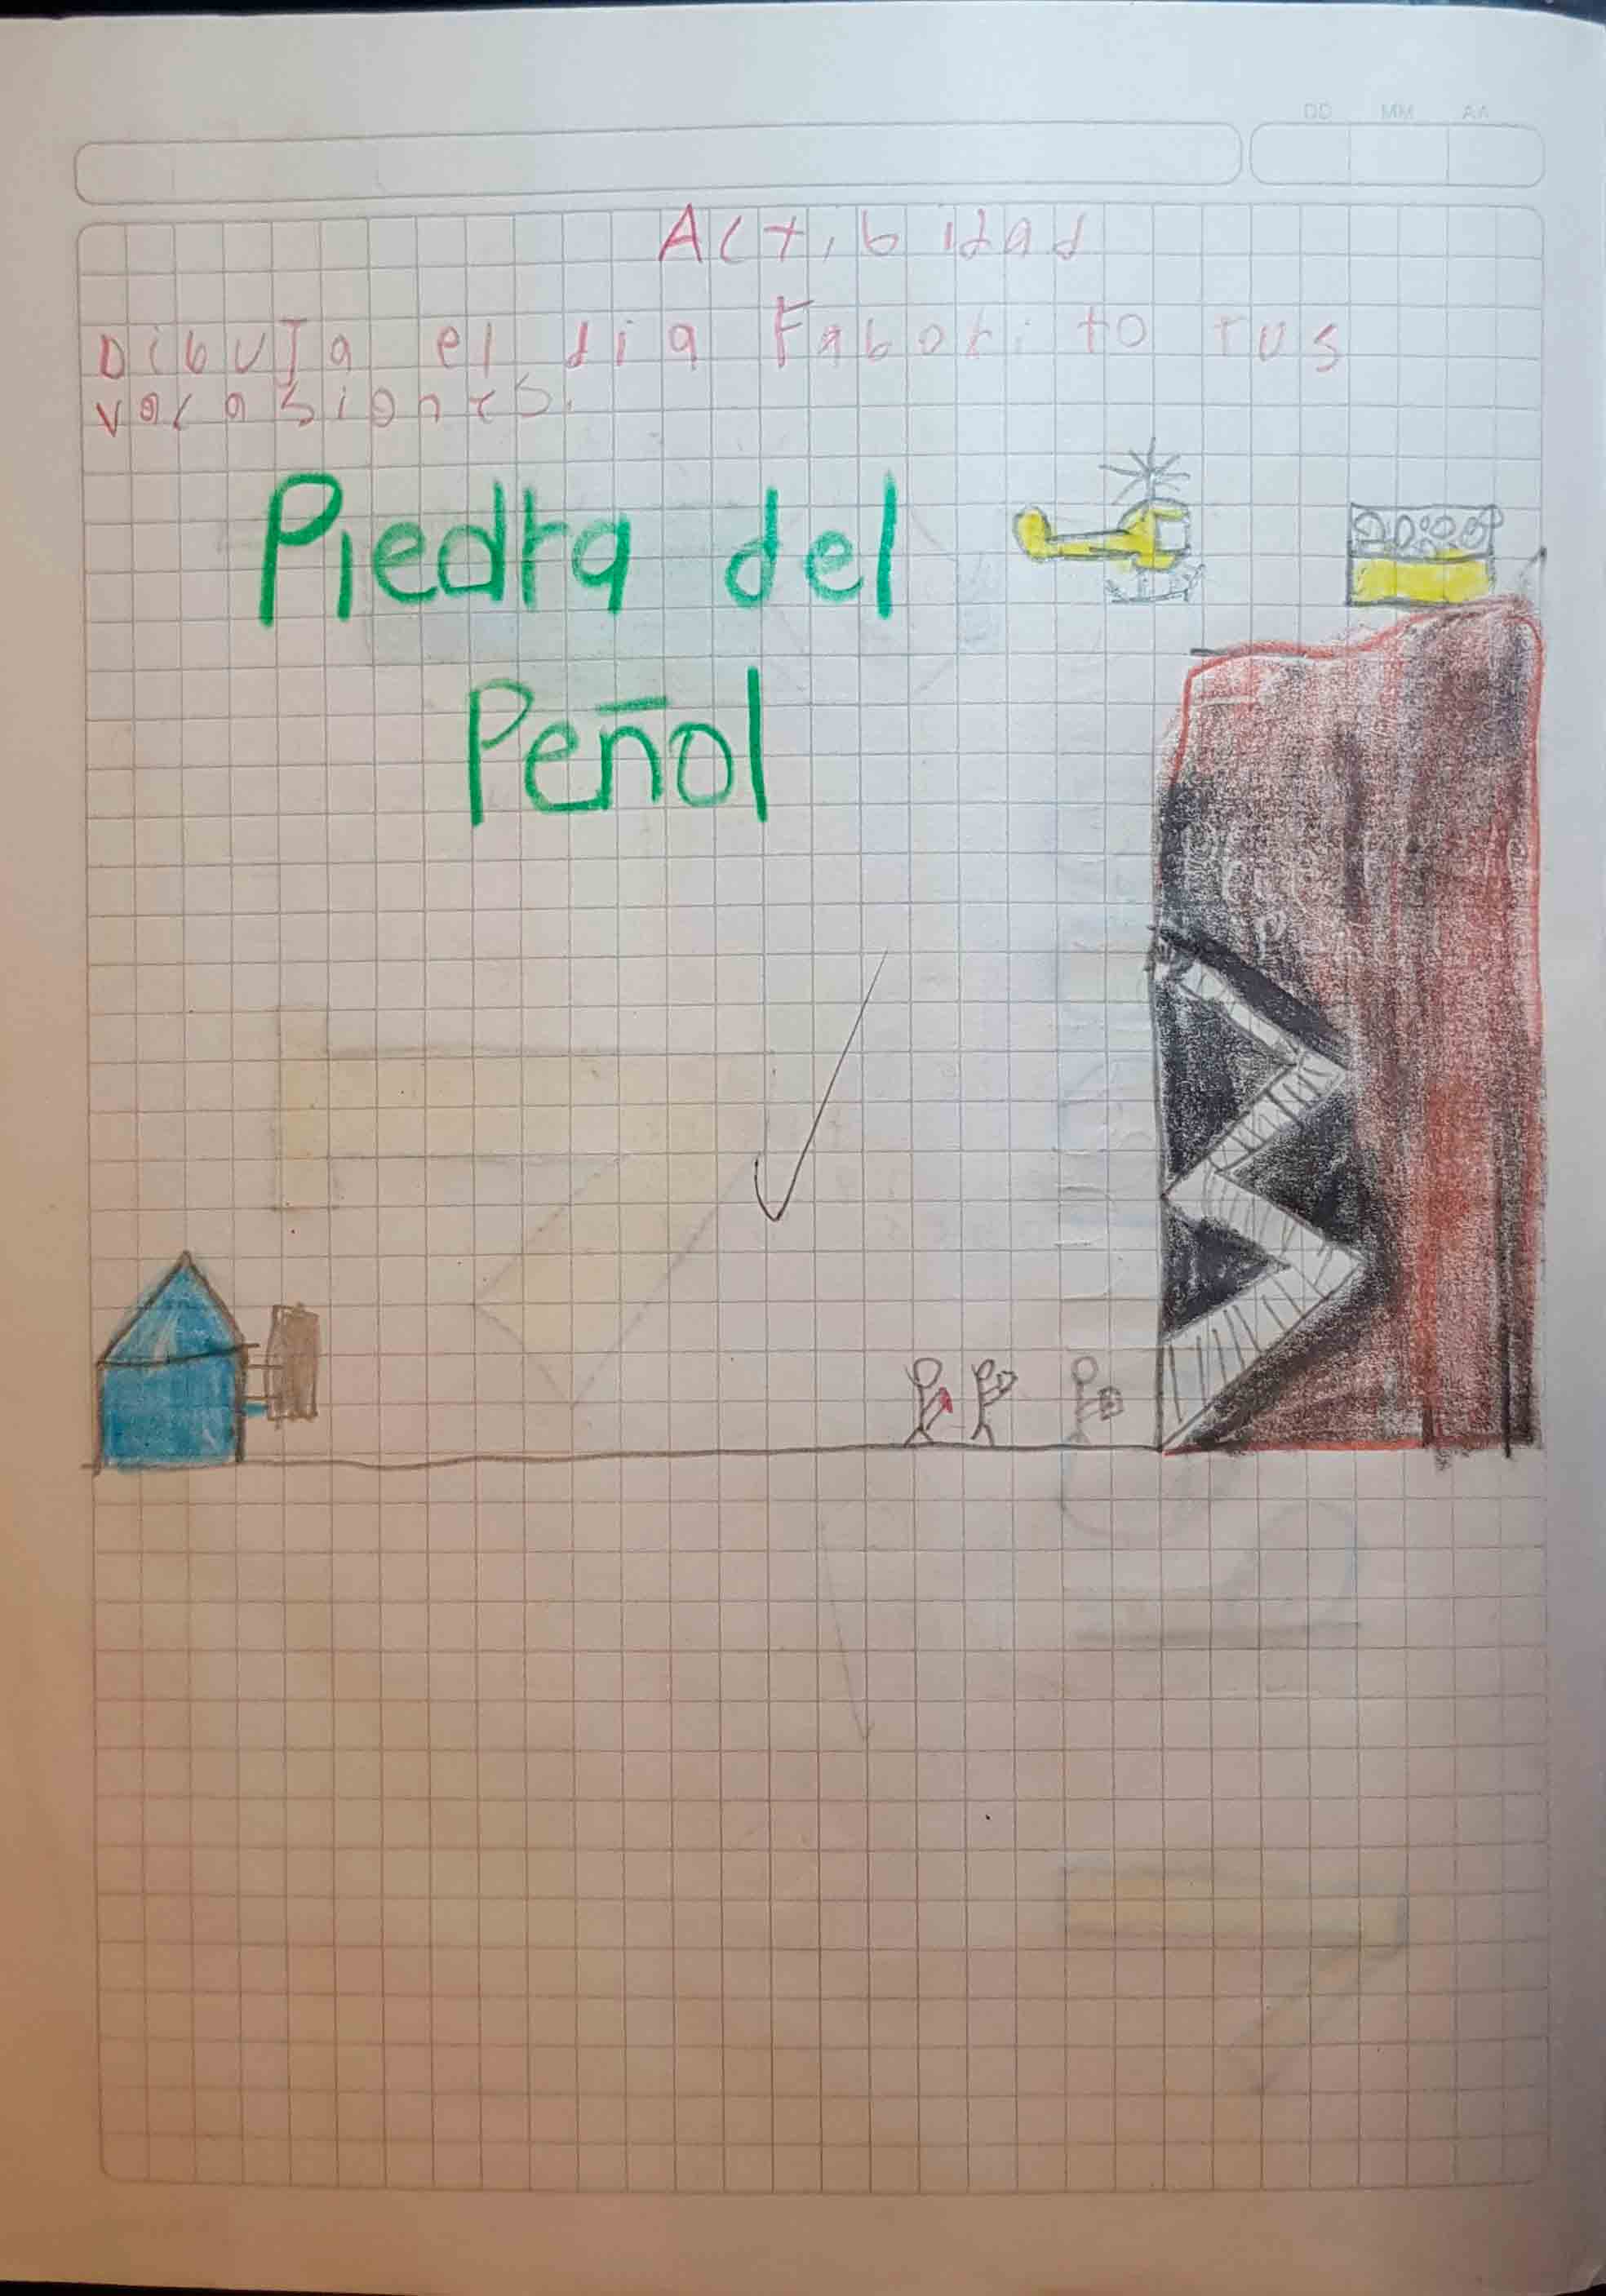 DD MM AA
Actibidad
Dibuja el dia Faborito tus
vacasiones.
Piedra del
Peñol